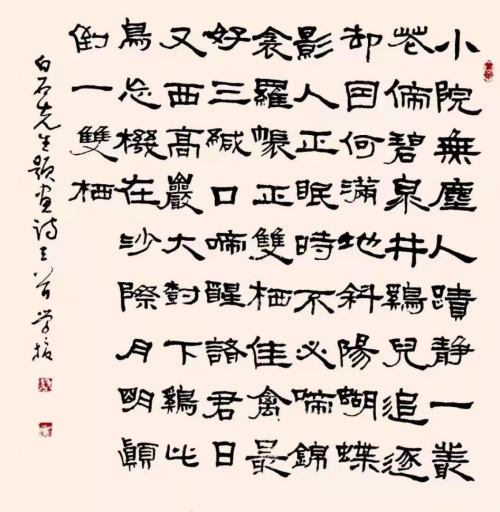 小院無塵人蹟靜一叢
花傍碧泉井鷄兒追逐
却因何滿地斜陽蝴蝶
影人正眠時不必啼錦
衾羅帳正雙栖佳禽最
好三緘口啼醒諸君日
又西高巖大對下鷄此
鳥忘機在沙際月明顛
倒一雙栖
白石先生題畫詩三首學振